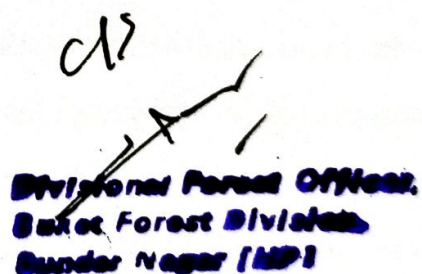 Divisional Forest Officer,
Suket Forest Division
Sunder Nagar [HP]